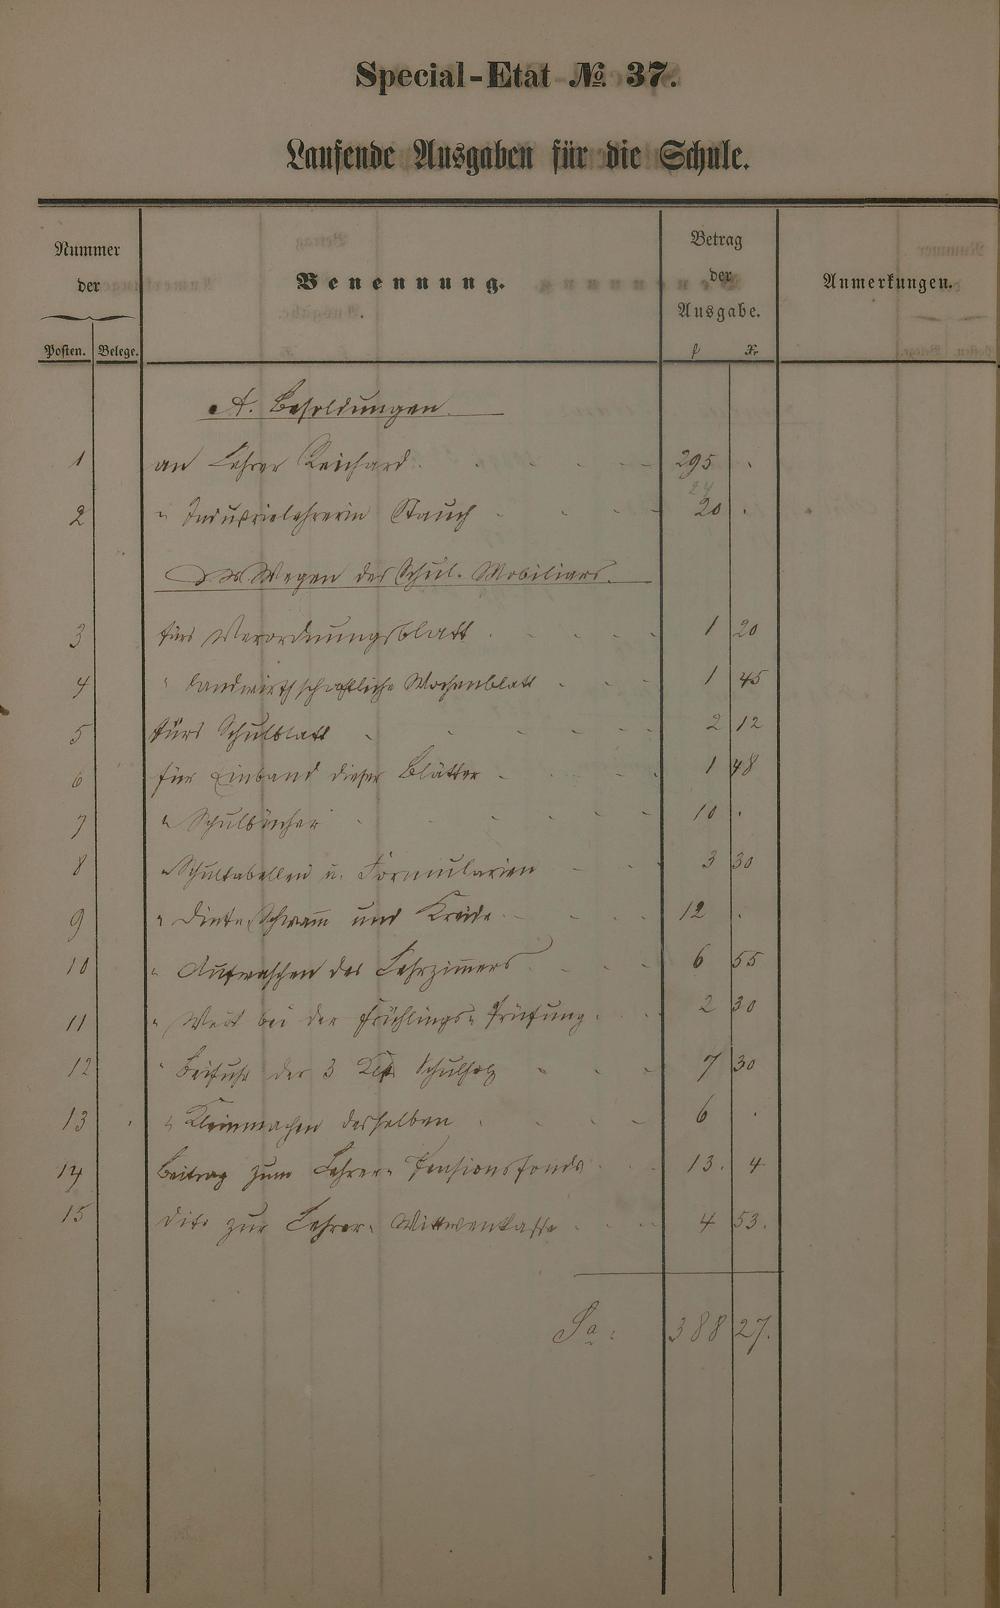 Special-Etat № 37.
Laufende Ausgaben für die Schule.
Nummer der
Posten. Belege.
Benennung.
Betrag der Ausgabe.
f Xr
Anmerkungen.
A. Besoldungen.
1 an Lehrer Reichard. 295 .
24
2 " Industrielehrerin Stauch 20 .
Wegen des Schul-Mobiliars.
3 fürs Verordnungsblatt 1 20
4 " landwirthschaftliche Wochenblatt 1 45
5 fürs Schulblatt 2 12
6 für Einband dieser Blätter 1 48
7 " Schulbücher 10 .
8 " Schultabellen u. Formularien 3 30
9 " Dinte, Schwam̄ und Kreide 12 .
10 " Aufwaschen des Lehrzim̄ers 6 55
11 " bei der Frühlings-Prüfung. 2 30
12 " Beifuhr der 3 Schulholz 7 30
13 " Kleinmachen desselben 6 .
14 Beitrag zum Lehrer-Pensionsfonds 13. 4
15 dito zur Lehrer-Wittwenkasse 4 53.
Sa: 388 27.